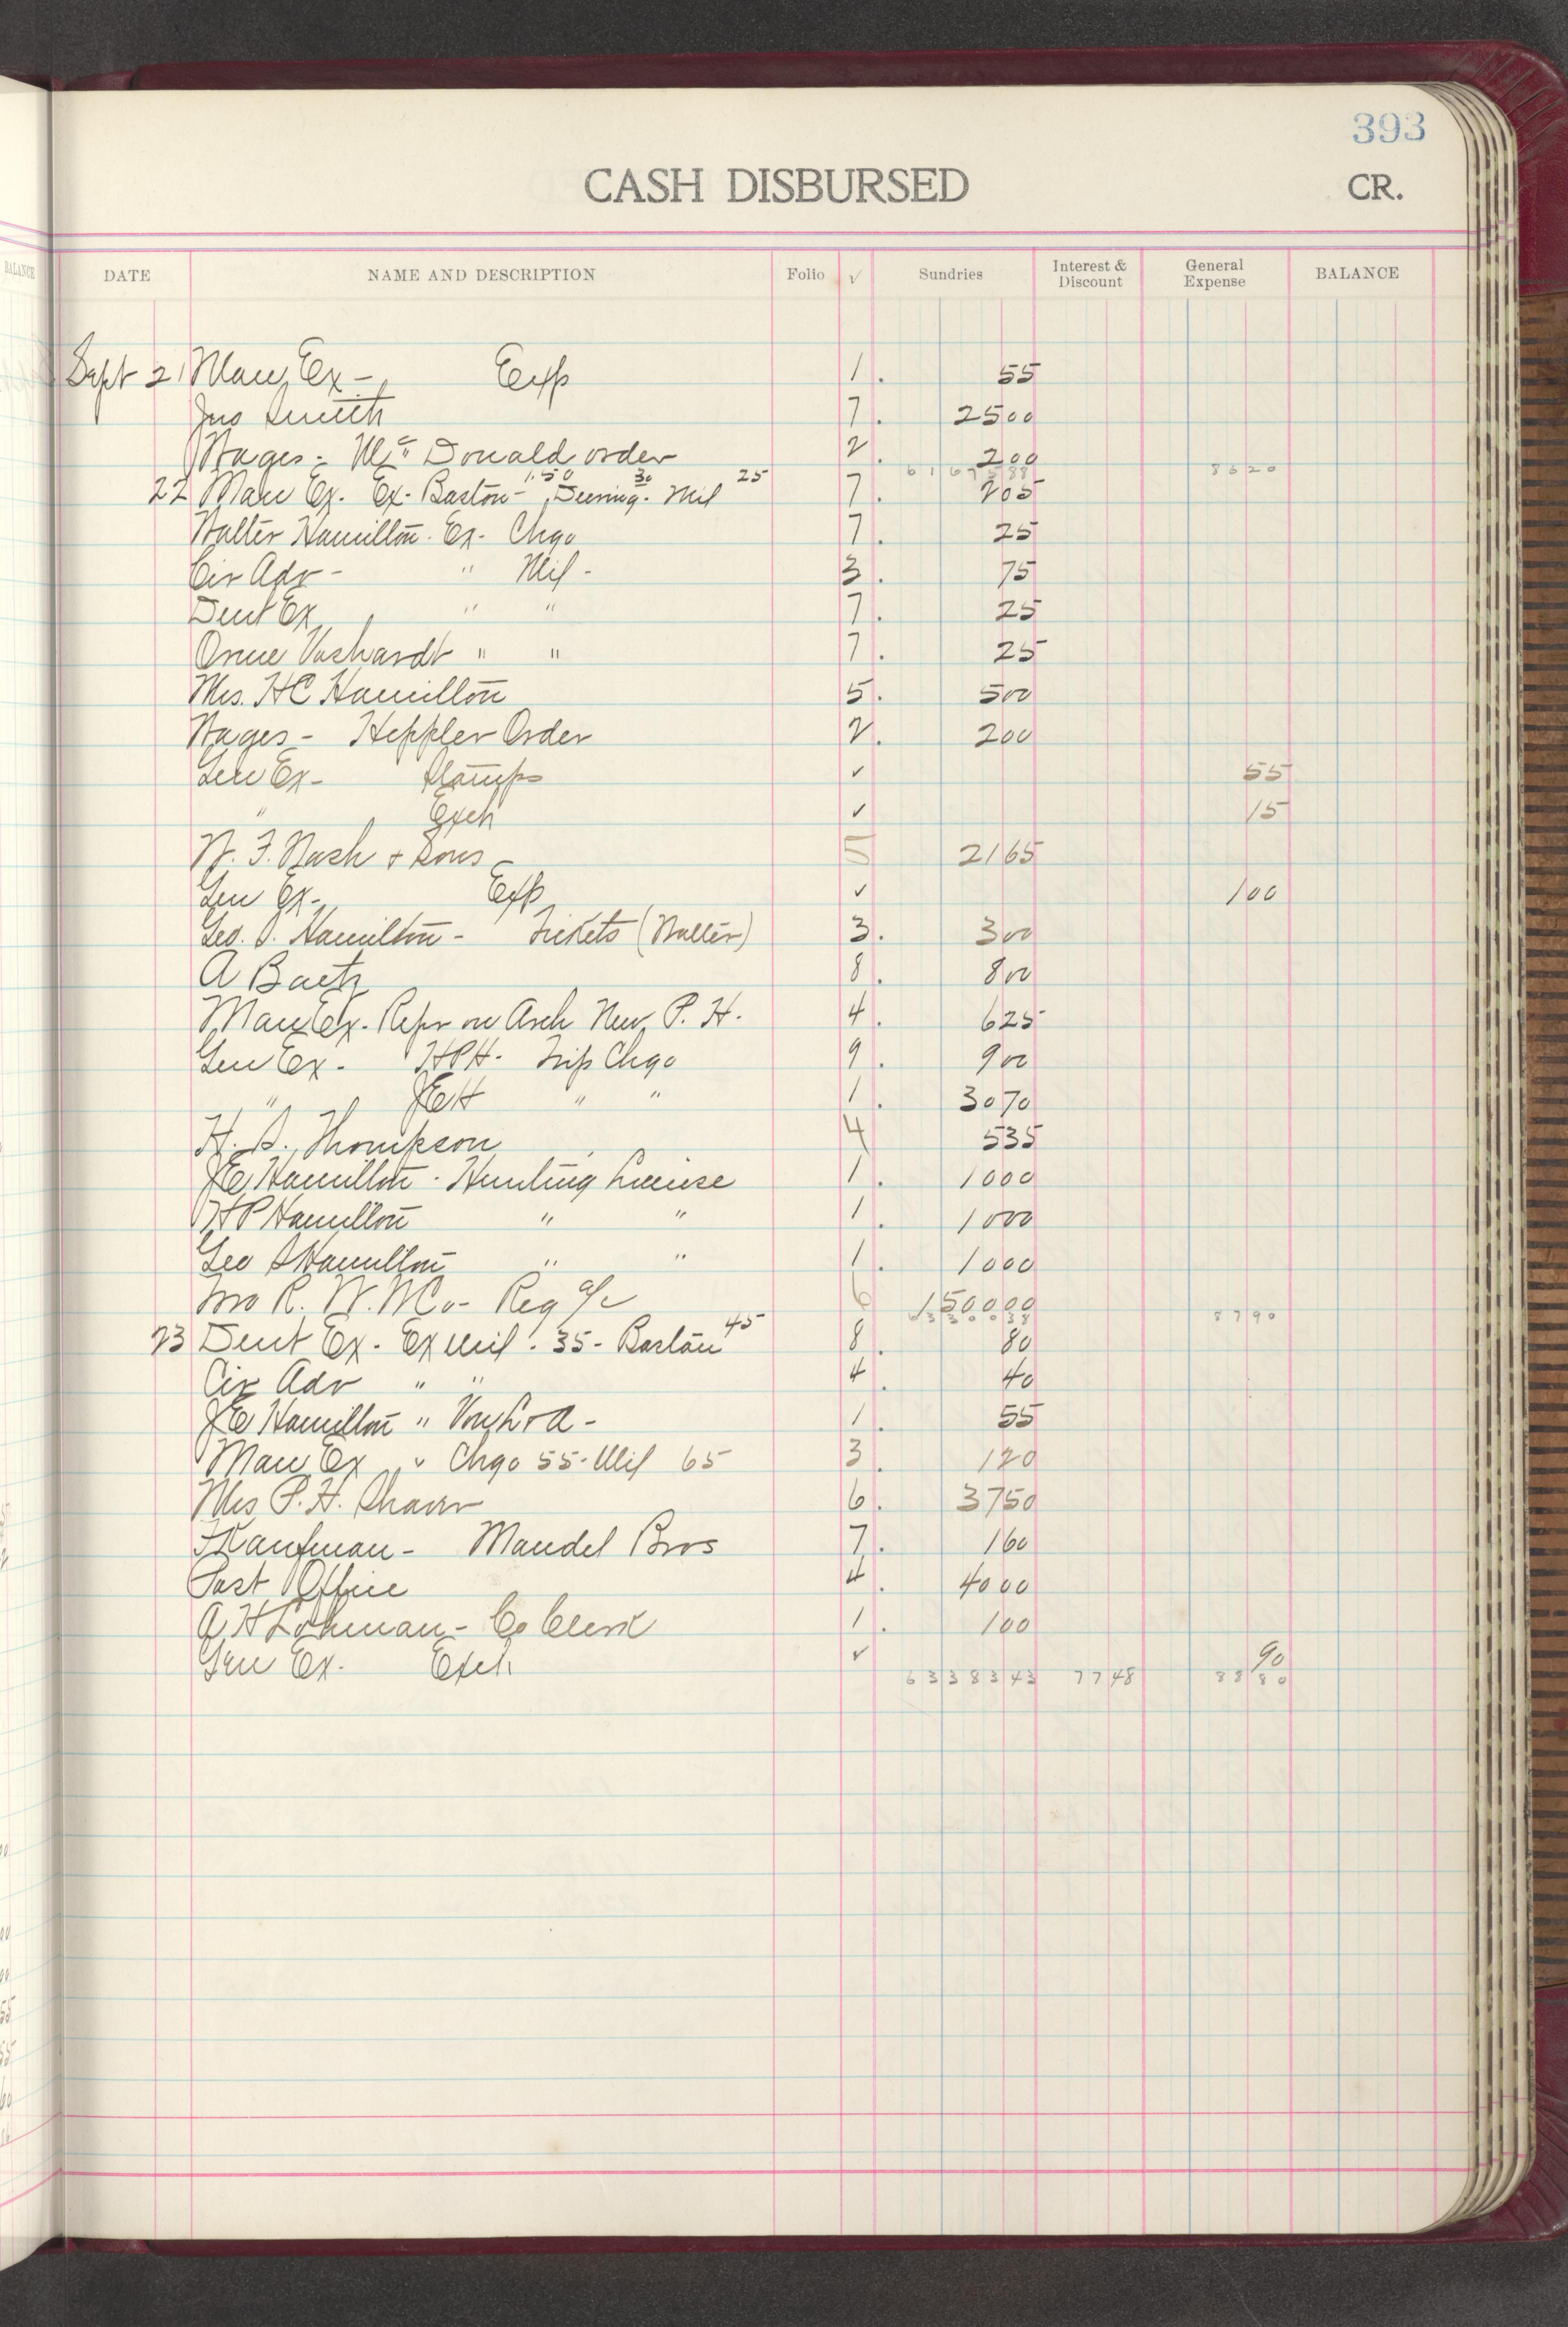 393
CASH DISBURSED CR.
BALANCE DATE NAME AND DESCRIPTION Folio √ Sundries Interest & Discount General Expense BALANCE
Sept 21 Man Ex - Exp 1. 55
Jno Smith 7. 2500
Wages - Mc Donald order 2. 200
6167588 8620
22 Man Ex. Ex- Barton - 1.50 Deering - 30 Mil 25 7. 205
Walter Hamilton - Ex - Chgo 7. 25
Cir Adv - " Mil - 3. 75
Dent Ex " " 7. 25
Orrie Voshardt " " 7. 25
Mrs. HC Hamilton 5. 500
Wages - Heppler Order 2. 200
Gen Ex - Stamps ✓ 55
" Exch ✓ 15
W. F. Nash & Sons - 5 2165
Gen Ex - Exp ✓ 100
Geo. S. Hamilton - Tickets (Walter) 3. 300
A Baetz 8. 800
Man Ex. Repr on Arch New P. H. 4. 625
Gen Ex - HPH - Trip Chgo 9. 900
" JEH " " 1. 3070
H. S. Thompson 4 535
JE Hamilton - Hunting License 1. 1000
HP Hamilton " " 1. 1000
Geo S Hamilton " " 1. 1000
Two R. W. M Co - Reg a/c 6 150000
6330038 8790
23 Dent Ex - Ex Mil - 35 - Barton 45 8. 80
Cir Adv " " 4. 40
JE Hamilton " - 1. 55
Man Ex " Chgo 55 - Mil 65 3. 120
Mrs P. H. Shaver 6. 3750
Kaufman - Mandel Bros 7. 160
Post Office 4. 4000
A H Lohman - Co Clerk 1. 100
Gen Ex - Exch ✓ 90
6338343 7748 8880